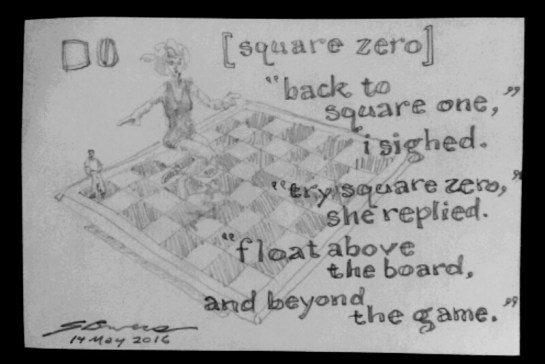 [square zero]
"back to
square one,"
i sighed.
"try square zero,"
she replied.
"float above
the board,
and beyond
the game."
14 May 2016